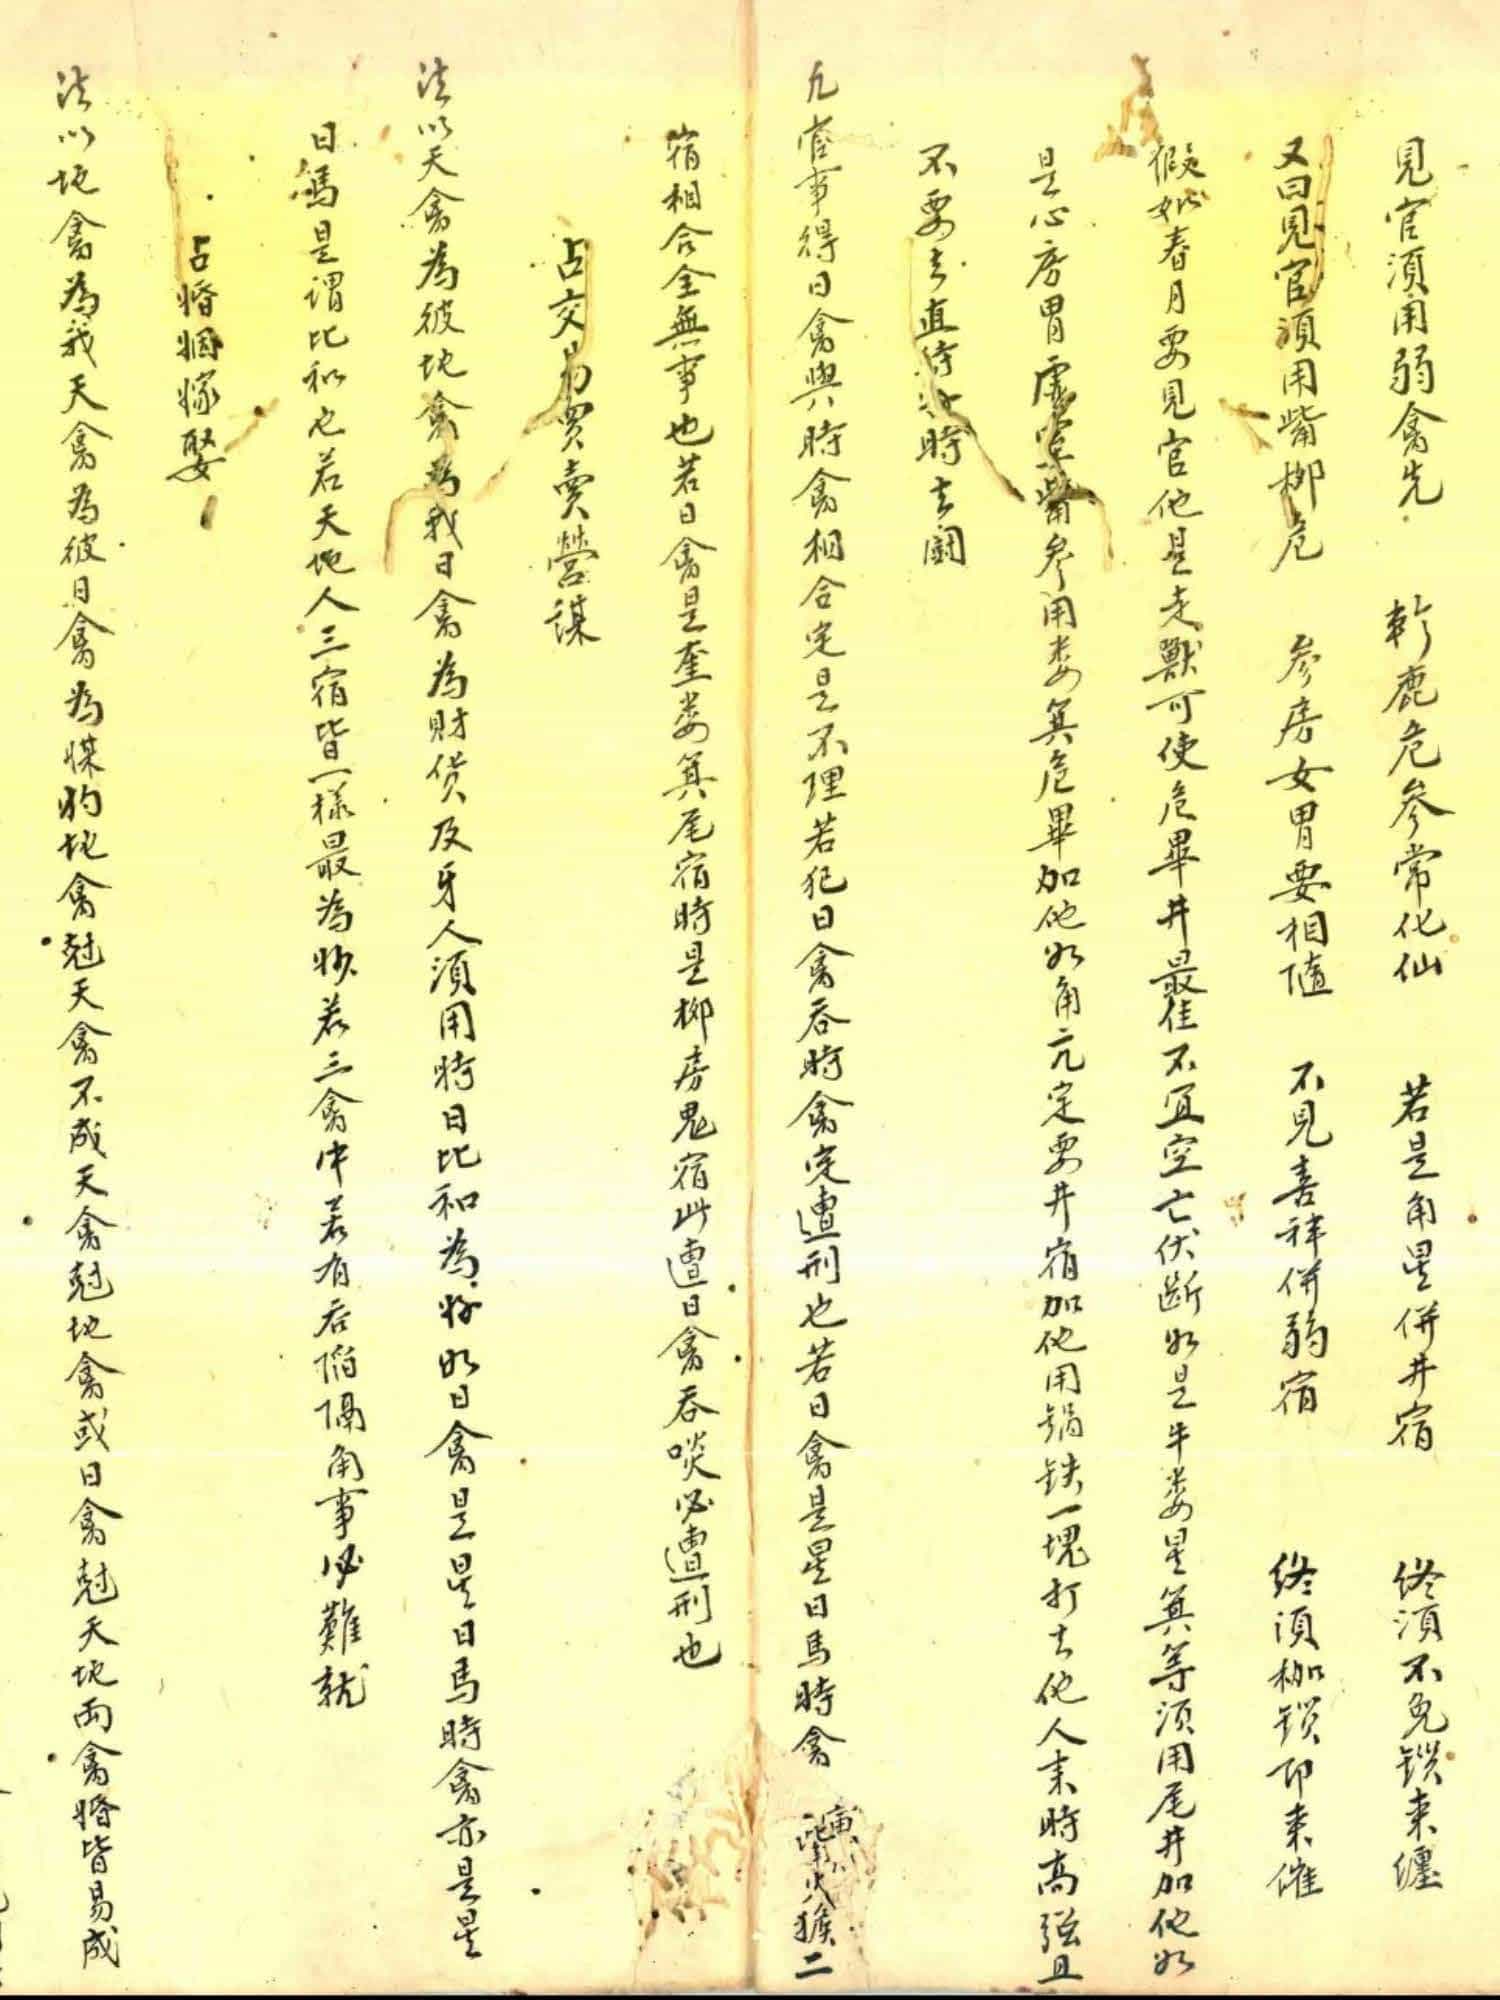 見官須用弱禽先　軫鹿危參常化仙　若是角星併井宿　終須不免鎖来纏
又曰見官須用觜柳危　參房女胃要相隨　不見喜祥併弱宿　終須枷鎖即来催
假如春月要見官他是走獸可使危畢井最佳不宜空亡伏断如是牛娄星箕等須用尾井加他如
是心房胃虛室觜參用娄箕危畢加他如角亢定要井宿加他用鍋鉄一塊打去他人来時高強且
不要去直待好時去鬭
凡官事得日禽與時禽相合定是不理若犯日禽吞時禽定遭刑也若日禽是星日馬時禽觜火猴二
宿相合全無事也若日禽是奎娄箕尾宿時是柳房鬼宿此遭日禽吞啖必遭刑也
占交易買賣營謀
法以天禽為彼地禽為我日禽為財货及牙人須用時日比和為好如日禽是星日馬時禽亦是星
日馬是谓比和也若天地人三宿皆一樣最為妙若三禽中若有吞啗隔角事必難就
占婚姻嫁娶
法以地禽為我天禽為彼日禽為媒妁地禽尅天禽不成天禽尅地禽或日禽尅天地両禽婚皆易成